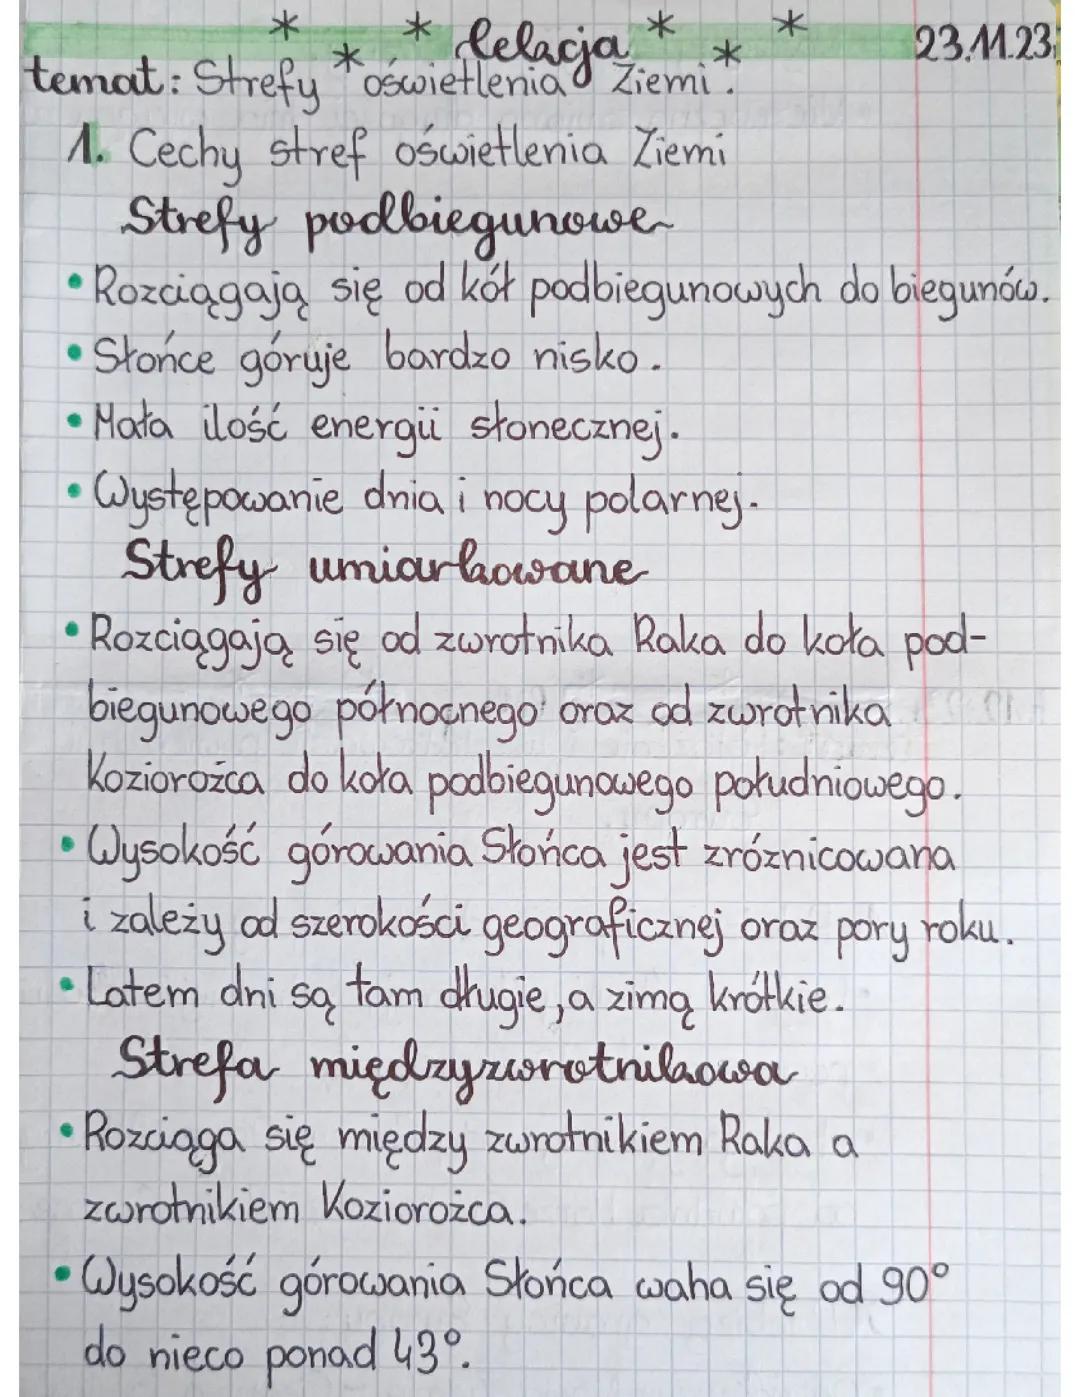 * * lelacja * * 23.11.23
temat: Strefy * oświetlenia Ziemi *.
1. Cechy stref oświetlenia Ziemi
Strefy podbiegunowe
• Rozciągają się od kół podbiegunowych do biegunów.
• Słońce góruje bardzo nisko.
• Mała ilość energii słonecznej.
• Występowanie dnia i nocy polarnej.
Strefy umiarkowane
• Rozciągają się od zwrotnika Raka do koła pod-
biegunowego północnego oraz od zwrotnika
Koziorożca do koła podbiegunowego południowego.
• Wysokość górowania Słońca jest zróżnicowana
i zależy od szerokości geograficznej oraz pory roku.
• Latem dni są tam długie, a zimą krótkie.
Strefa międzyzwrotnikowa
• Rozciąga się między zwrotnikiem Raka a
zwrotnikiem Koziorożca.
• Wysokość górowania Słońca waha się od 90°
do nieco ponad 43°.